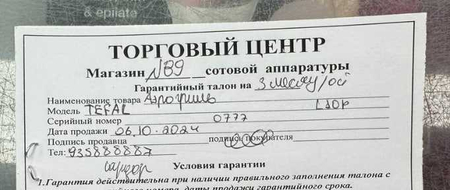 & epilate
ТОРГОВЫЙ ЦЕНТР
Магазин №39 сотовой аппаратуры
Гарантийный талон на 3 месяц
Наименование товара Аэрогриль
Модель TEFAL
Серийный номер 0777
Дата продажи 06.10.2024
Подпись продавца подпись покупателя
Тел: 935888887
Условия гарантии
1. Гарантия действительна при наличии правильного заполнения талона с
модели, номера, даты продажи гарантийного срока.